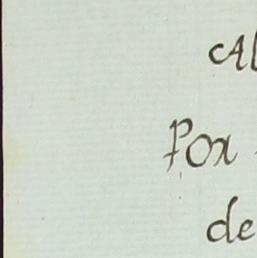 Al
Por
de